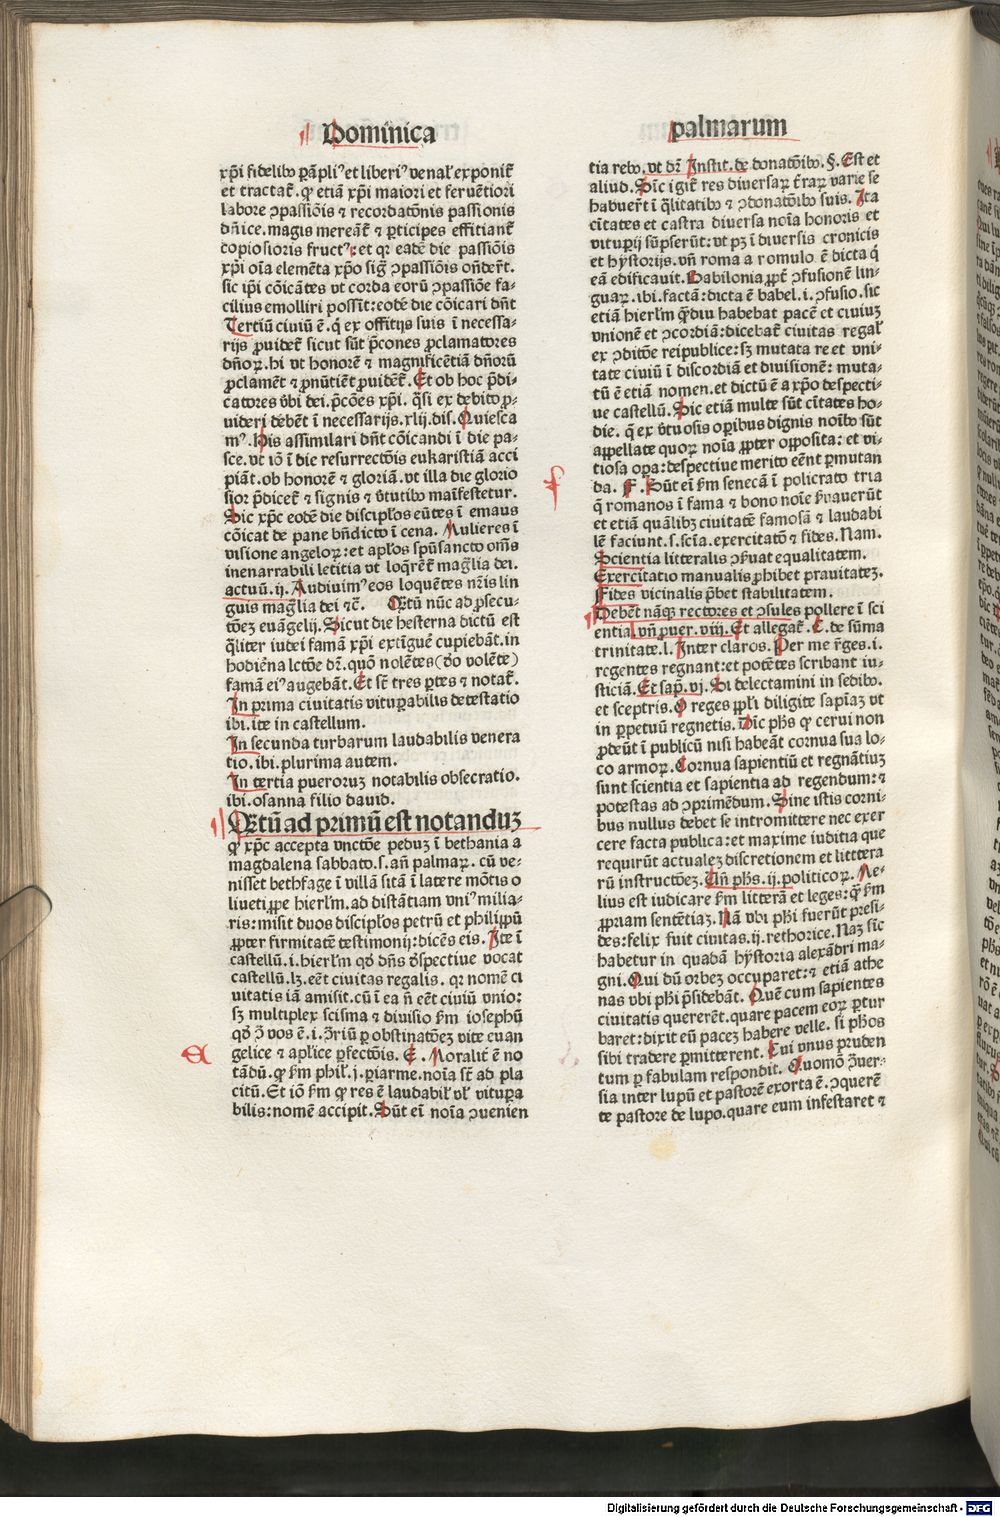 Dominica
xp̄i fidelibꝰ ꝑāpliꝰ et liberiꝰ venal̕ exponit̄
et tractat̄. ꝙ etiā xp̄i maiori et feruētiori
labore ꝯpassiōis ⁊ recordatōnis passionis
dn̄ice. magis mereāt̄ ⁊ ꝑticipes effitiant̄
copiosioris fructꝰ: et qꝛ eadē die passiōis
xp̄i oīa elemēta xp̄o sig̅ ꝯpassiōis on̄der̄t.
sic ip̄i cōicātes vt corda eorū ꝯpassiōe fa-
cilius emolliri possīt: eodē die cōicari dn̄t
Tertiū ciuiū ē. q̇ ex offitijs suis ī necessa-
rijs ꝓuidet̄ sicut sūt p̄cones ꝓclamatores
dn̄oꝝ. hi vt honorē ⁊ magnificētiā dn̄orū
ꝓclamēt ⁊ ꝓnūtiēt ꝓuidet̄. Et ob hoc p̄di-
catores v̄bi dei. p̄cōes xp̄i. q̄si ex debito ꝓ-
uideri debēt ī necessarijs. xlij. dis. Quiesca
mꝰ. His assimilari dn̄t cōicandi ī die pa-
sce. vt iō ī die resurrectōis eukaristiā acci
piāt. ob honorē ⁊ gloriā. vt illa die glorio
sior p̄dicet̄ ⁊ signis ⁊ v̄tutibꝰ maīfestetur.
Sic xp̄c eodē die disciplos eūtes ī emaus
cōicat de pane bn̄dicto ī cena. Mulieres ī
visione angeloꝝ: et apl̄os spūsancto om̄s
inenarrabili letitia vt loq̄rēt̄ mag̅lia dei.
actuū. ij. Audiuimꝰ eos loquētes nr̄is lin
guis mag̅lia dei ⁊c̄. Etū nūc ad ꝓsecu-
tōeꝫ euāgelij. Sicut die hesterna dictū est
q̄liter iudei famā xp̄i extīgue̅ cupiebāt. in
hodiēna lctōe dꝛ. quō nolētes (v̄o volēte)
famā eiꝰ augebāt. Et sc̄ tres ꝑtes ⁊ notat̄.
In prima ciuitatis vituꝑabilis detestatio
ibi. ite in castellum.
In secunda turbarum laudabilis venera
tio. ibi. plurima autem.
In tertia pueroruꝫ notabilis obsecratio.
ibi. osanna filio dauid.
Etū ad primū est notanduꝫ
ꝙ xp̄c accepta vnctōe peduꝫ ī bethania a
magdalena sabbato. s. an̄ palmaꝝ. cū ve-
nisset bethfage ī villā sitā ī latere mōtis o
liueti ꝓpe hierl̄m. ad distātiam vniꝰ milia-
ris: misit duos disciplos petrū et philippū
ꝓpter firmitatē testimonij: dicēs eis. Ite ī
castellū. i. hierl̄m qd̄ dn̄s despectiue vocat
castellū. lꝫ. eēt ciuitas regalis. qꝛ nomē ci
uitatis iā amisit. cū ī ea n̄ eēt ciuiū vnio:
sꝫ multiplex scisma ⁊ diuisio ẜm iosephū
qd̄ ꝯ vos ē. i. ꝯriū ꝑ obstinatōeꝫ vite euan
gelice ⁊ apl̄ice ꝑfectōis. E. Moralit̄ ē no
tādū. ꝙ ẜm phil̄. j. ꝑiarme. noīa sc̄ ad pla
citū. Et iō ẜm ꝙ res ē laudabil̕ vl̕ vituꝑa
bilis: nomē accipit. Sūt eī noīa ꝯuenien
E
palmarum
tia rebꝰ. vt dꝛ Instit. de donatōibꝰ. §. Est et
aliud. Sic igit̄ res diuersaꝝ t̄raꝝ varie se
habuer̄t ī q̄litatibꝰ ⁊ ꝯdonatōibꝰ suis. Ita
cītates et castra diuersa noīa honoris et
vituꝑij sūpserūt: vt pꝫ ī diuersis cronicis
et hystorijs. vn̄ roma a romulo ē dicta q̇
eā edificauit. Babilonia ꝓpt̄ ꝯfusionē lin-
guaꝝ. ibi. factā: dicta ē babel. i. ꝯfusio. sic
etiā hierl̄m q̄diu habebat pacē et ciuiuꝫ
vnionē et ꝯcordiā: dicebat̄ ciuitas regal̕
ex ꝯditōe reipublice: sꝫ mutata re et vni-
tate ciuiū ī discordiā et diuisionē: muta-
tū ē etiā nomen. et dictū ē a xp̄o despecti-
ue castellū. Sic etiā multe sūt cītates ho-
die. q̄ ex v̄tuosis oꝑibus dignis noībꝰ sūt
appellate quoꝝ noīa ꝓpter opposita: et vi-
tiosa oꝑa: despectiue merito eēnt ꝑmutan
da. F. Sūt eī ẜm senecā ī policrato tria
q̄ romanos ī fama ⁊ bono noīe ẜuauerūt
et etiā quālibꝫ ciuitatē famosā ⁊ laudabi
lē faciunt. s. scīa. exercitatō ⁊ fides. Nam.
Scientia litteralis ꝯẜuat equalitatem.
Exercitatio manualis ꝓhibet prauitateꝫ.
Fides vicinalis p̄bet stabilitatem.
Debēt nāqꝫ rectores et ꝯsules pollere ī sci
entia. vn̄ puer. viii. Et allegat̄. C. de sūma
trinitate. l. Inter claros. Per me r̄ges. i.
regentes regnant: et potētes scribant iu-
sticiā. Et sap̄. vj. Si delectamini in sedibꝰ.
et sceptris. O reges ppl̄i diligite sapīaꝫ vt
in ꝑpetuū regnetis. Dic ph̄s ꝙ cerui non
ꝓdeūt ī publicū nisi habeāt cornua sua lo-
co armoꝝ. Cornua sapientiū et regnātiuꝫ
sunt scientia et sapientia ad regendum: ⁊
potestas ad ꝯprimēdum. Sine istis corni-
bus nullus debet se intromittere nec exer
cere facta publica: et maxime iuditia que
requirūt actualeꝫ discretionem et litttera
rū instructōeꝫ. Un̄ ph̄s. ij. politicoꝝ. Me-
lius est iudicare ẜm litterā et leges: ꝙ ẜm
ꝓpriam sentētiaꝫ. Nā vbi ph̄i fuerūt presi-
des: felix fuit ciuitas. ij. rethorice. Naꝫ sic
habetur in quadā hystoria alexādri ma-
gni. Qui dū orbeꝫ occuparet: ⁊ etiā athe
nas vbi ph̄i p̄sidebāt. Quē cum sapientes
ciuitatis quererēt. quare pacem eoꝝ ꝑtur
baret: dixit eū paceꝫ habere velle. si ph̄os
sibi tradere ꝑmitterent. Cui vnus pruden
tum ꝑ fabulam respondit. Quomō ꝯuer-
sia inter lupū et pastorē exorta ē. ꝯquerē
te pastore de lupo. quare eum infestaret ⁊
f
Digitalisierung gefördert durch die Deutsche Forschungsgemeinschaft - DFG